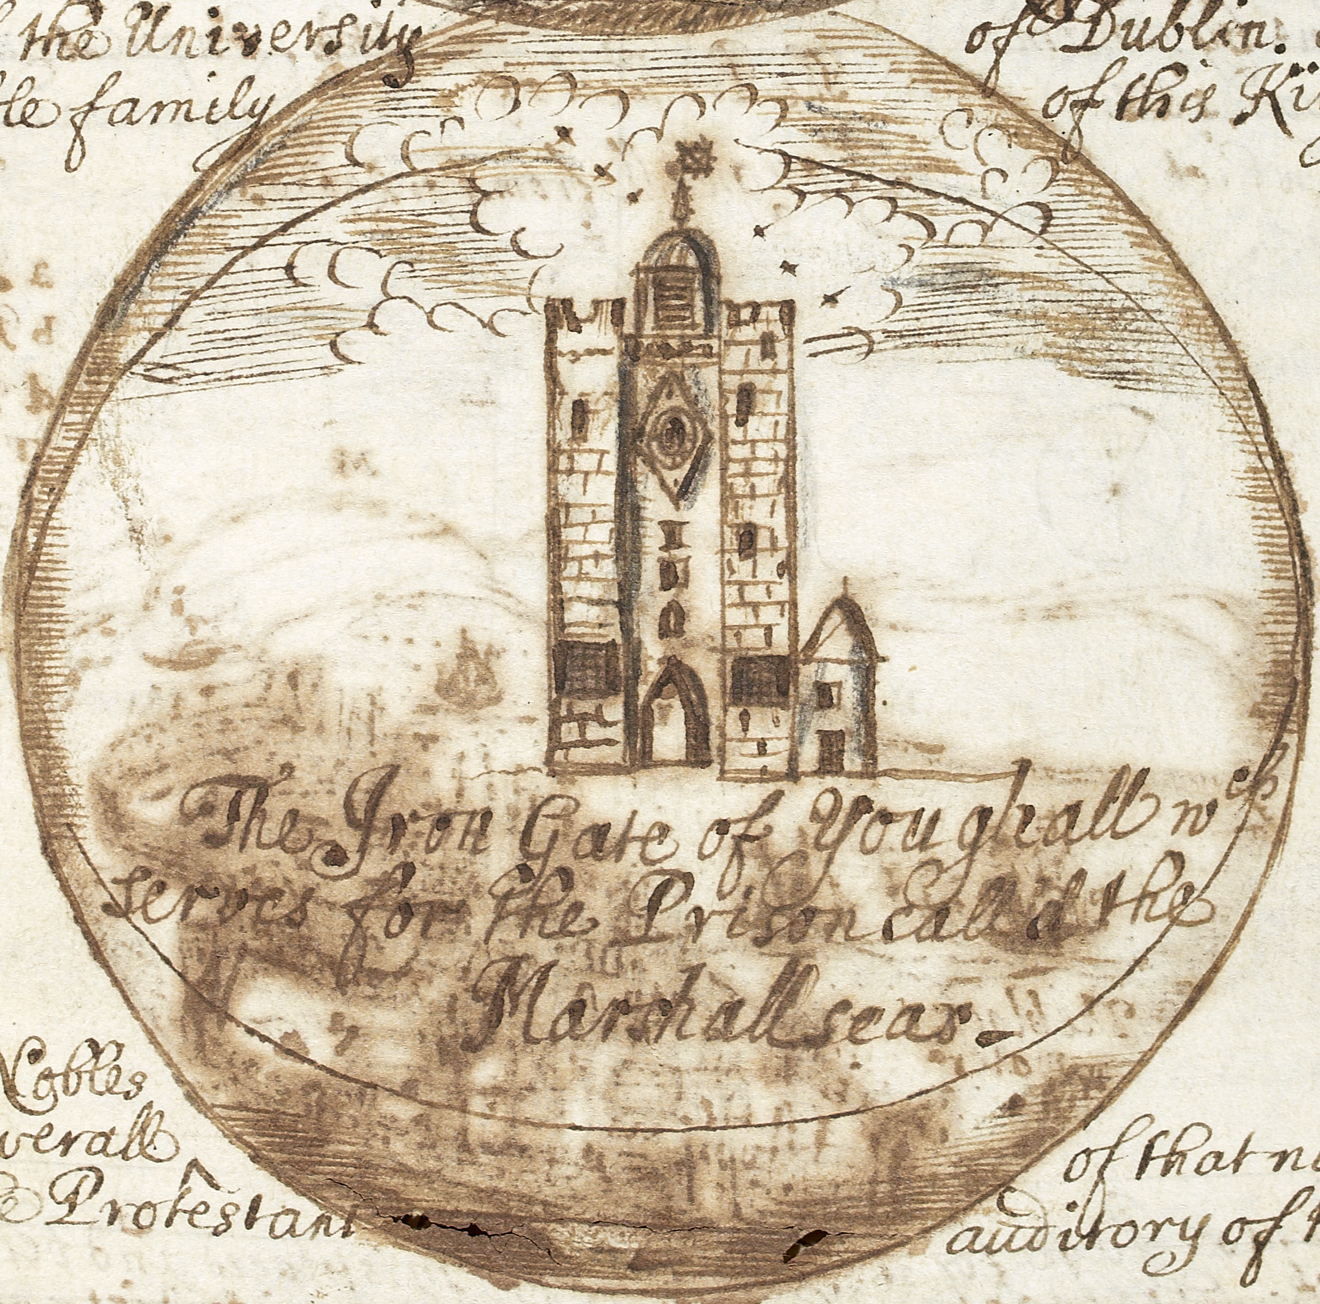 the University of Dublin.
family of this
The Iron Gate of Youghall wch
serves for the Prison call'd the
Marshallseas
Nobles
verall of that
Protestant auditory of